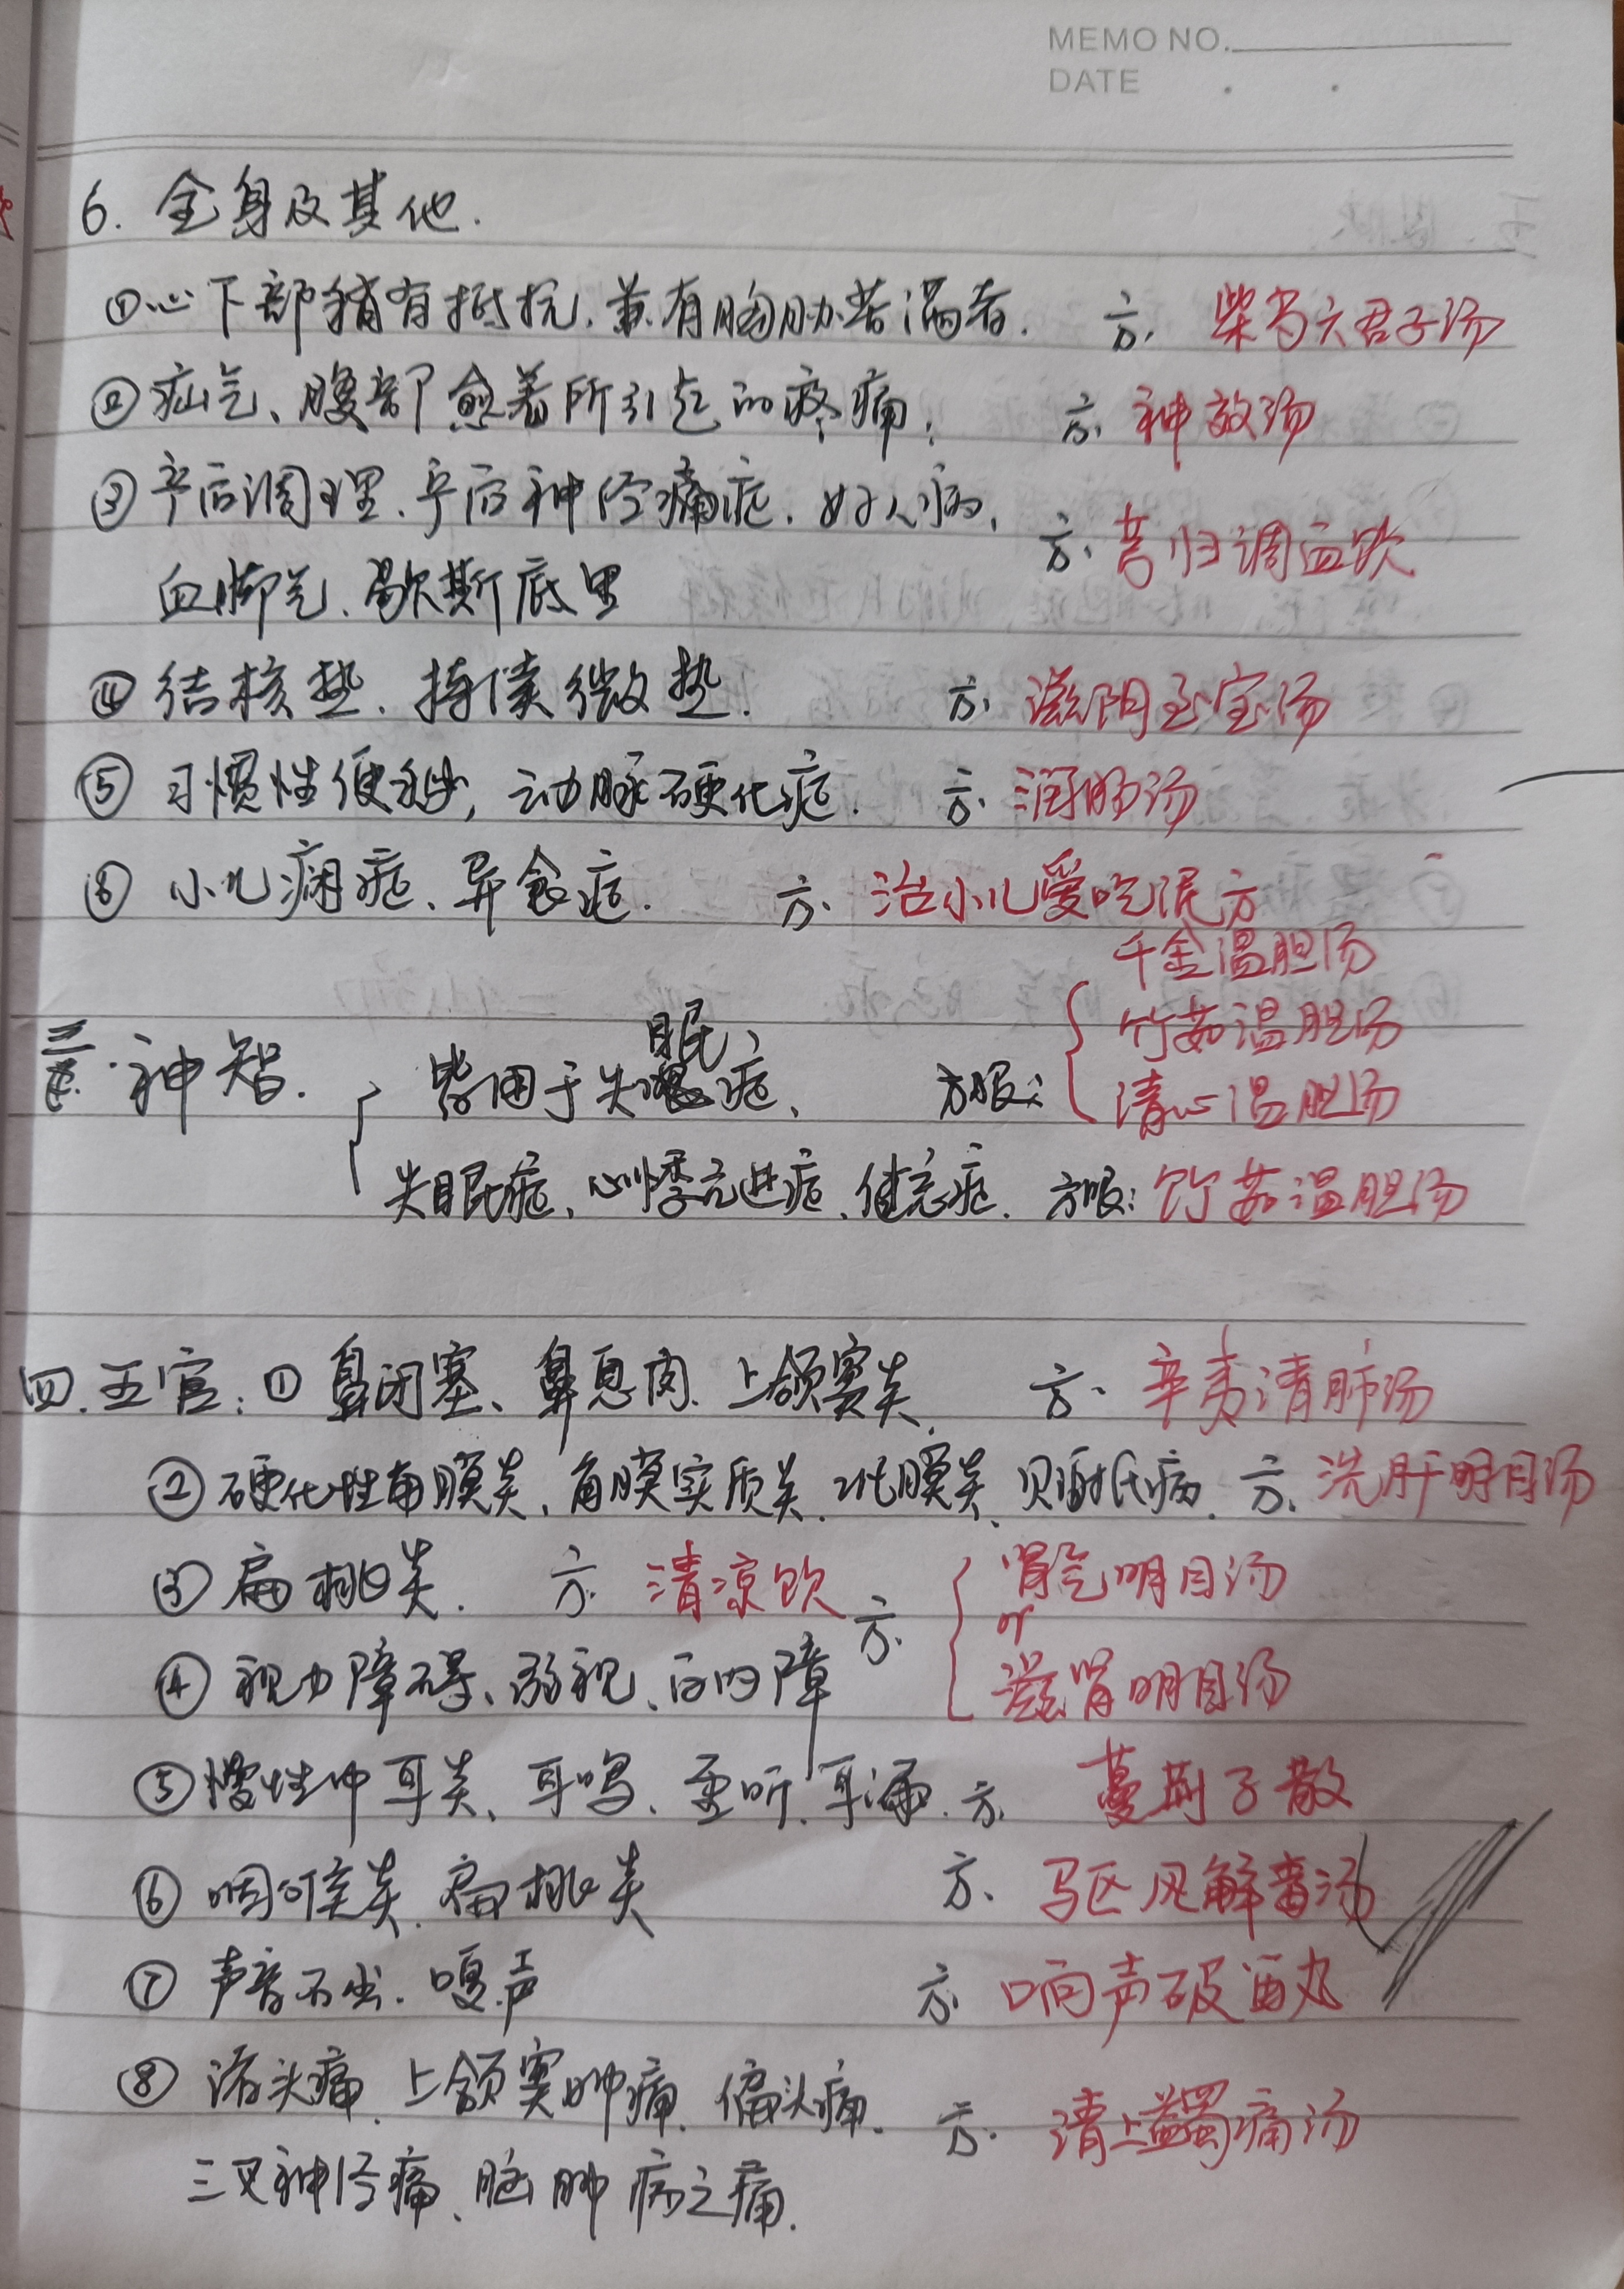 MEMO NO.
DATE
6. 全身及其他.
①心下部稍有抵抗、兼有胸肋苦满者. 方、柴芍六君子汤
②疝气、腹部愈着所引起的疼痛. 方、神效汤
③产后调理、产后神经痛症、妇人病、
方、芎归调血饮
血脚气、歇斯底里
④结核热、持续微热. 方、滋阴至宝汤
⑤习惯性便秘, 动脉硬化症. 方、润肠汤
⑥小儿痫症、异食症. 方、治小儿爱吃泥方
千金温胆汤
三.神智. 皆用于失眠症、 方服: 竹茹温胆汤
清心温胆汤
失眠症、心悸亢进症、健忘症. 方服: 竹茹温胆汤
四.五官: ①鼻闭塞、鼻息肉、上颌窦炎. 方、辛夷清肺汤
②硬化性角膜炎、角膜实质炎、巩膜炎、贝赫氏病. 方、洗肝明目汤
③扁桃炎. 方、清凉饮
方、肾气明目汤
or
④视力障碍、弱视、白内障 滋肾明目汤
⑤慢性中耳炎、耳鸣、重听、耳漏. 方、蔓荆子散
⑥咽喉炎、扁桃炎 方、驱风解毒汤
⑦声音不出. 嘎声 方、响声破笛丸
⑧诸头痛、上颌窦肿痛、偏头痛. 方、清上蠲痛汤
三叉神经痛、脑肿病之痛.